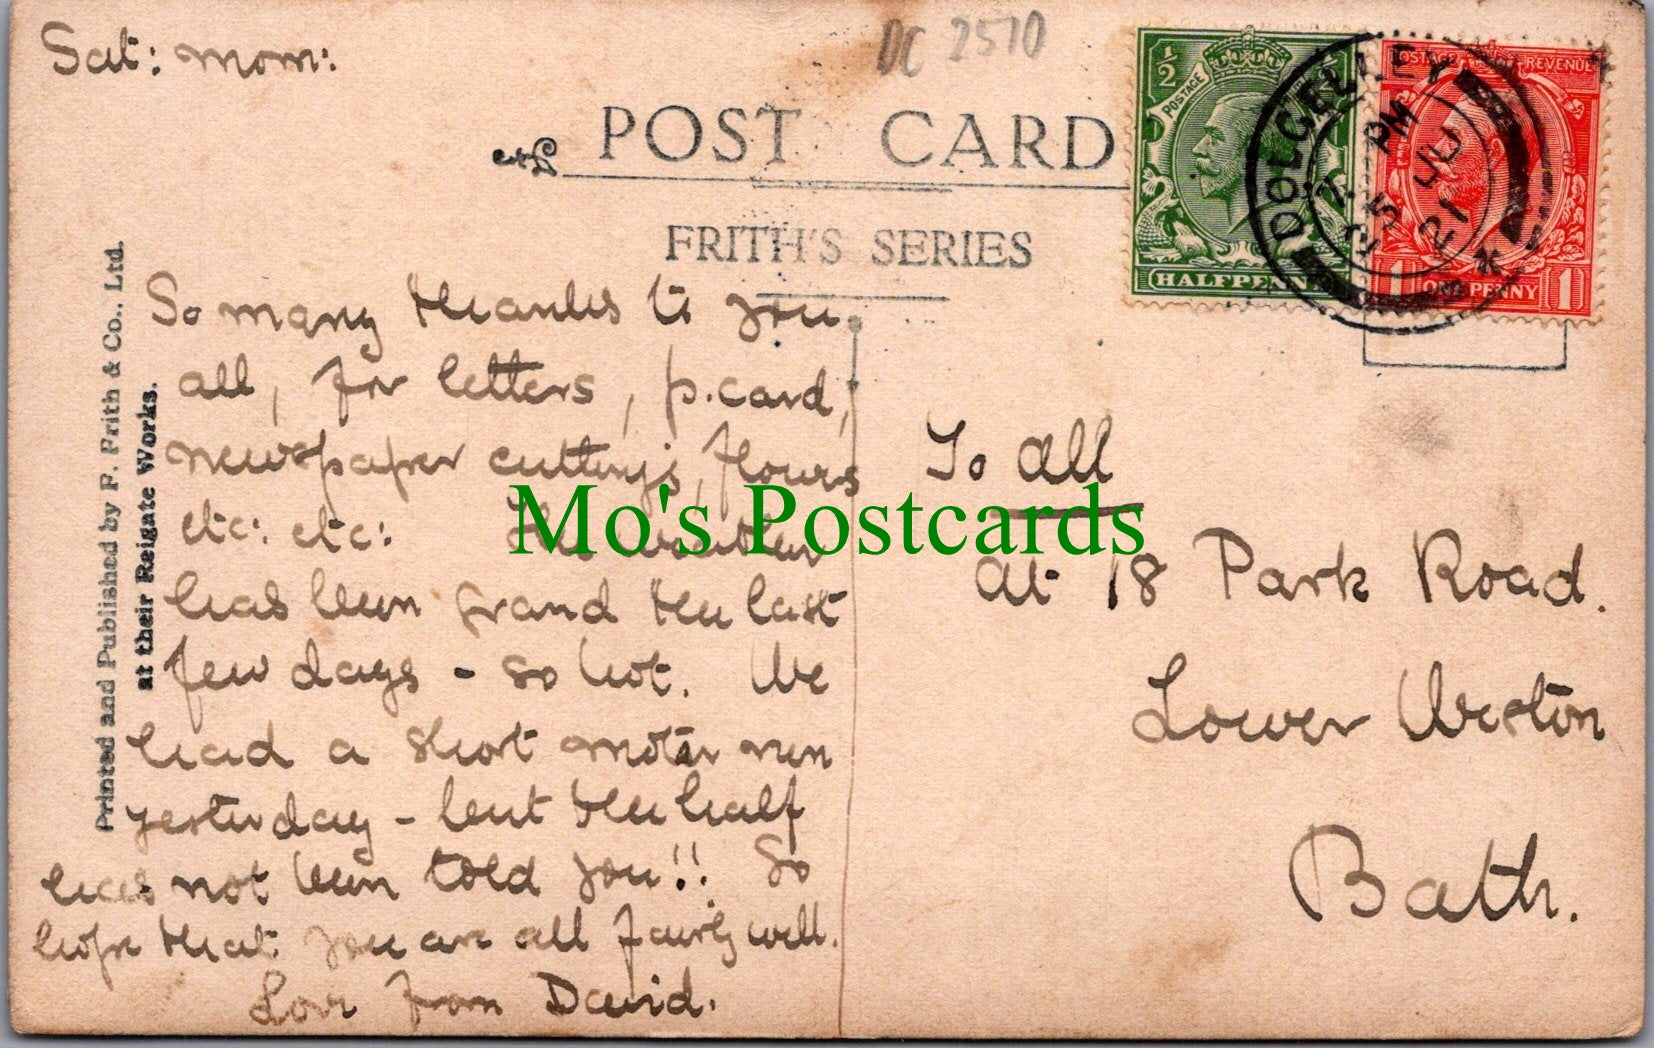 Sat: morn:
DC 2510
POST CARD
FRITH'S SERIES
HALFPENNY
POSTAGE
1/2
POSTAGE REVENUE
1 ONE PENNY 1
DOLGELLEY
PM
25 JU
21
Printed and Published by F. Frith & Co., Ltd.
at their Reigate Works.
So many thanks to you
all, for letters, p.card,
newspaper cuttings, flowers
etc: etc: The weather
has been grand the last
few days - so hot. We
had a short motor run
yesterday - but the half
has not been told you!! So
hope that you are all fairly well.
Love from David.
To all
at 18 Park Road.
Lower Weston
Bath.
Mo's Postcards